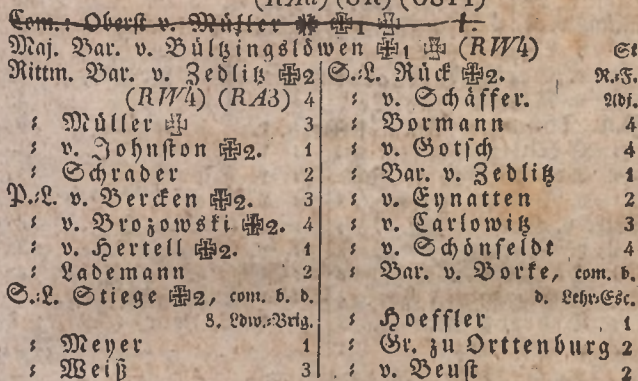 (RA2) (OR) (GSH)
Com.: Oberst v. Müller ✠1 †.
Maj. Bar. v. Bültzingslöwen ✠1 (RW4) St
Rittm. Bar. v. Zedlitz ✠2
(RW4) (RA3) 4
: Müller 3
: v. Johnston ✠2. 1
: Schrader 2
P.:L. v. Bercken ✠2. 3
: v. Brozowski ✠2. 4
: v. Hertell ✠2. 1
: Lademann 2
S.:L. Stiege ✠2, com. b. d.
8. Ldw.:Brig.
: Meyer 1
: Weiß 3
S.:L. Rück ✠2. R.:F.
: v. Schäffer. Adj.
: Bormann 4
: v. Gotsch 4
: Bar. v. Zedlitz 1
: v. Eynatten 2
: v. Carlowitz 3
: v. Schönfeldt 4
: Bar. v. Borke, com. b.
d. Lehr:Esc.
: Hoeffler 1
: Gr. zu Orttenburg 2
: v. Beust 2